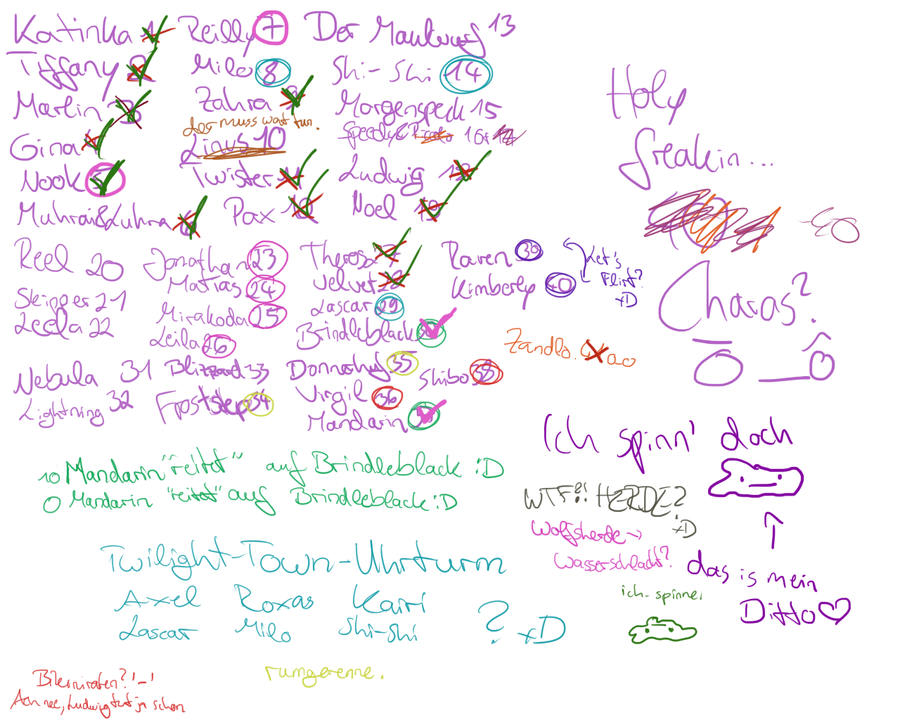 Katinka
Reilly 7
Der Maulwurf 13
Tiffany
Milo 8
Shi-Shi 14
Marlin 3
Zahra
Morgenspeck 15
Gina
der muss was tun.
Linus 10
Speedy&
Nook
Twister
Ludwig
Muhrai&Luhra
Pax
Noel
Reel 20
Jonathan 23
Theros
Raven 39
Let's
Flirt?
xD
Skinger 21
Matias 24
Velvet
Kimberly 40
Leela 22
Mirakoda 25
Lascar 29
Leila 26
Brindleblack
Nebula 31
Blizzard 33
Donnerhuf 35
Shibo 38
Lightning 32
Froststep 34
Virgil 36
Mandarin
Zandlo.
Holy
freakin...
Charas?
Ō__Ô
10 Mandarin "reitet" auf Brindleblack :D
0 Mandarin "reitet" auf Brindleblack :D
Twilight-Town-Uhrturm
Axel Roxas Kairi
Lascar Milo Shi-Shi ? xD
rumgerenne.
Ach nee, Ludwig tut ja schon
Ich spinn' doch
WTF?! HERDE?
xD
Wolfsherde →
Wasserschlacht?
ich spinne.
das is mein
Ditto♡